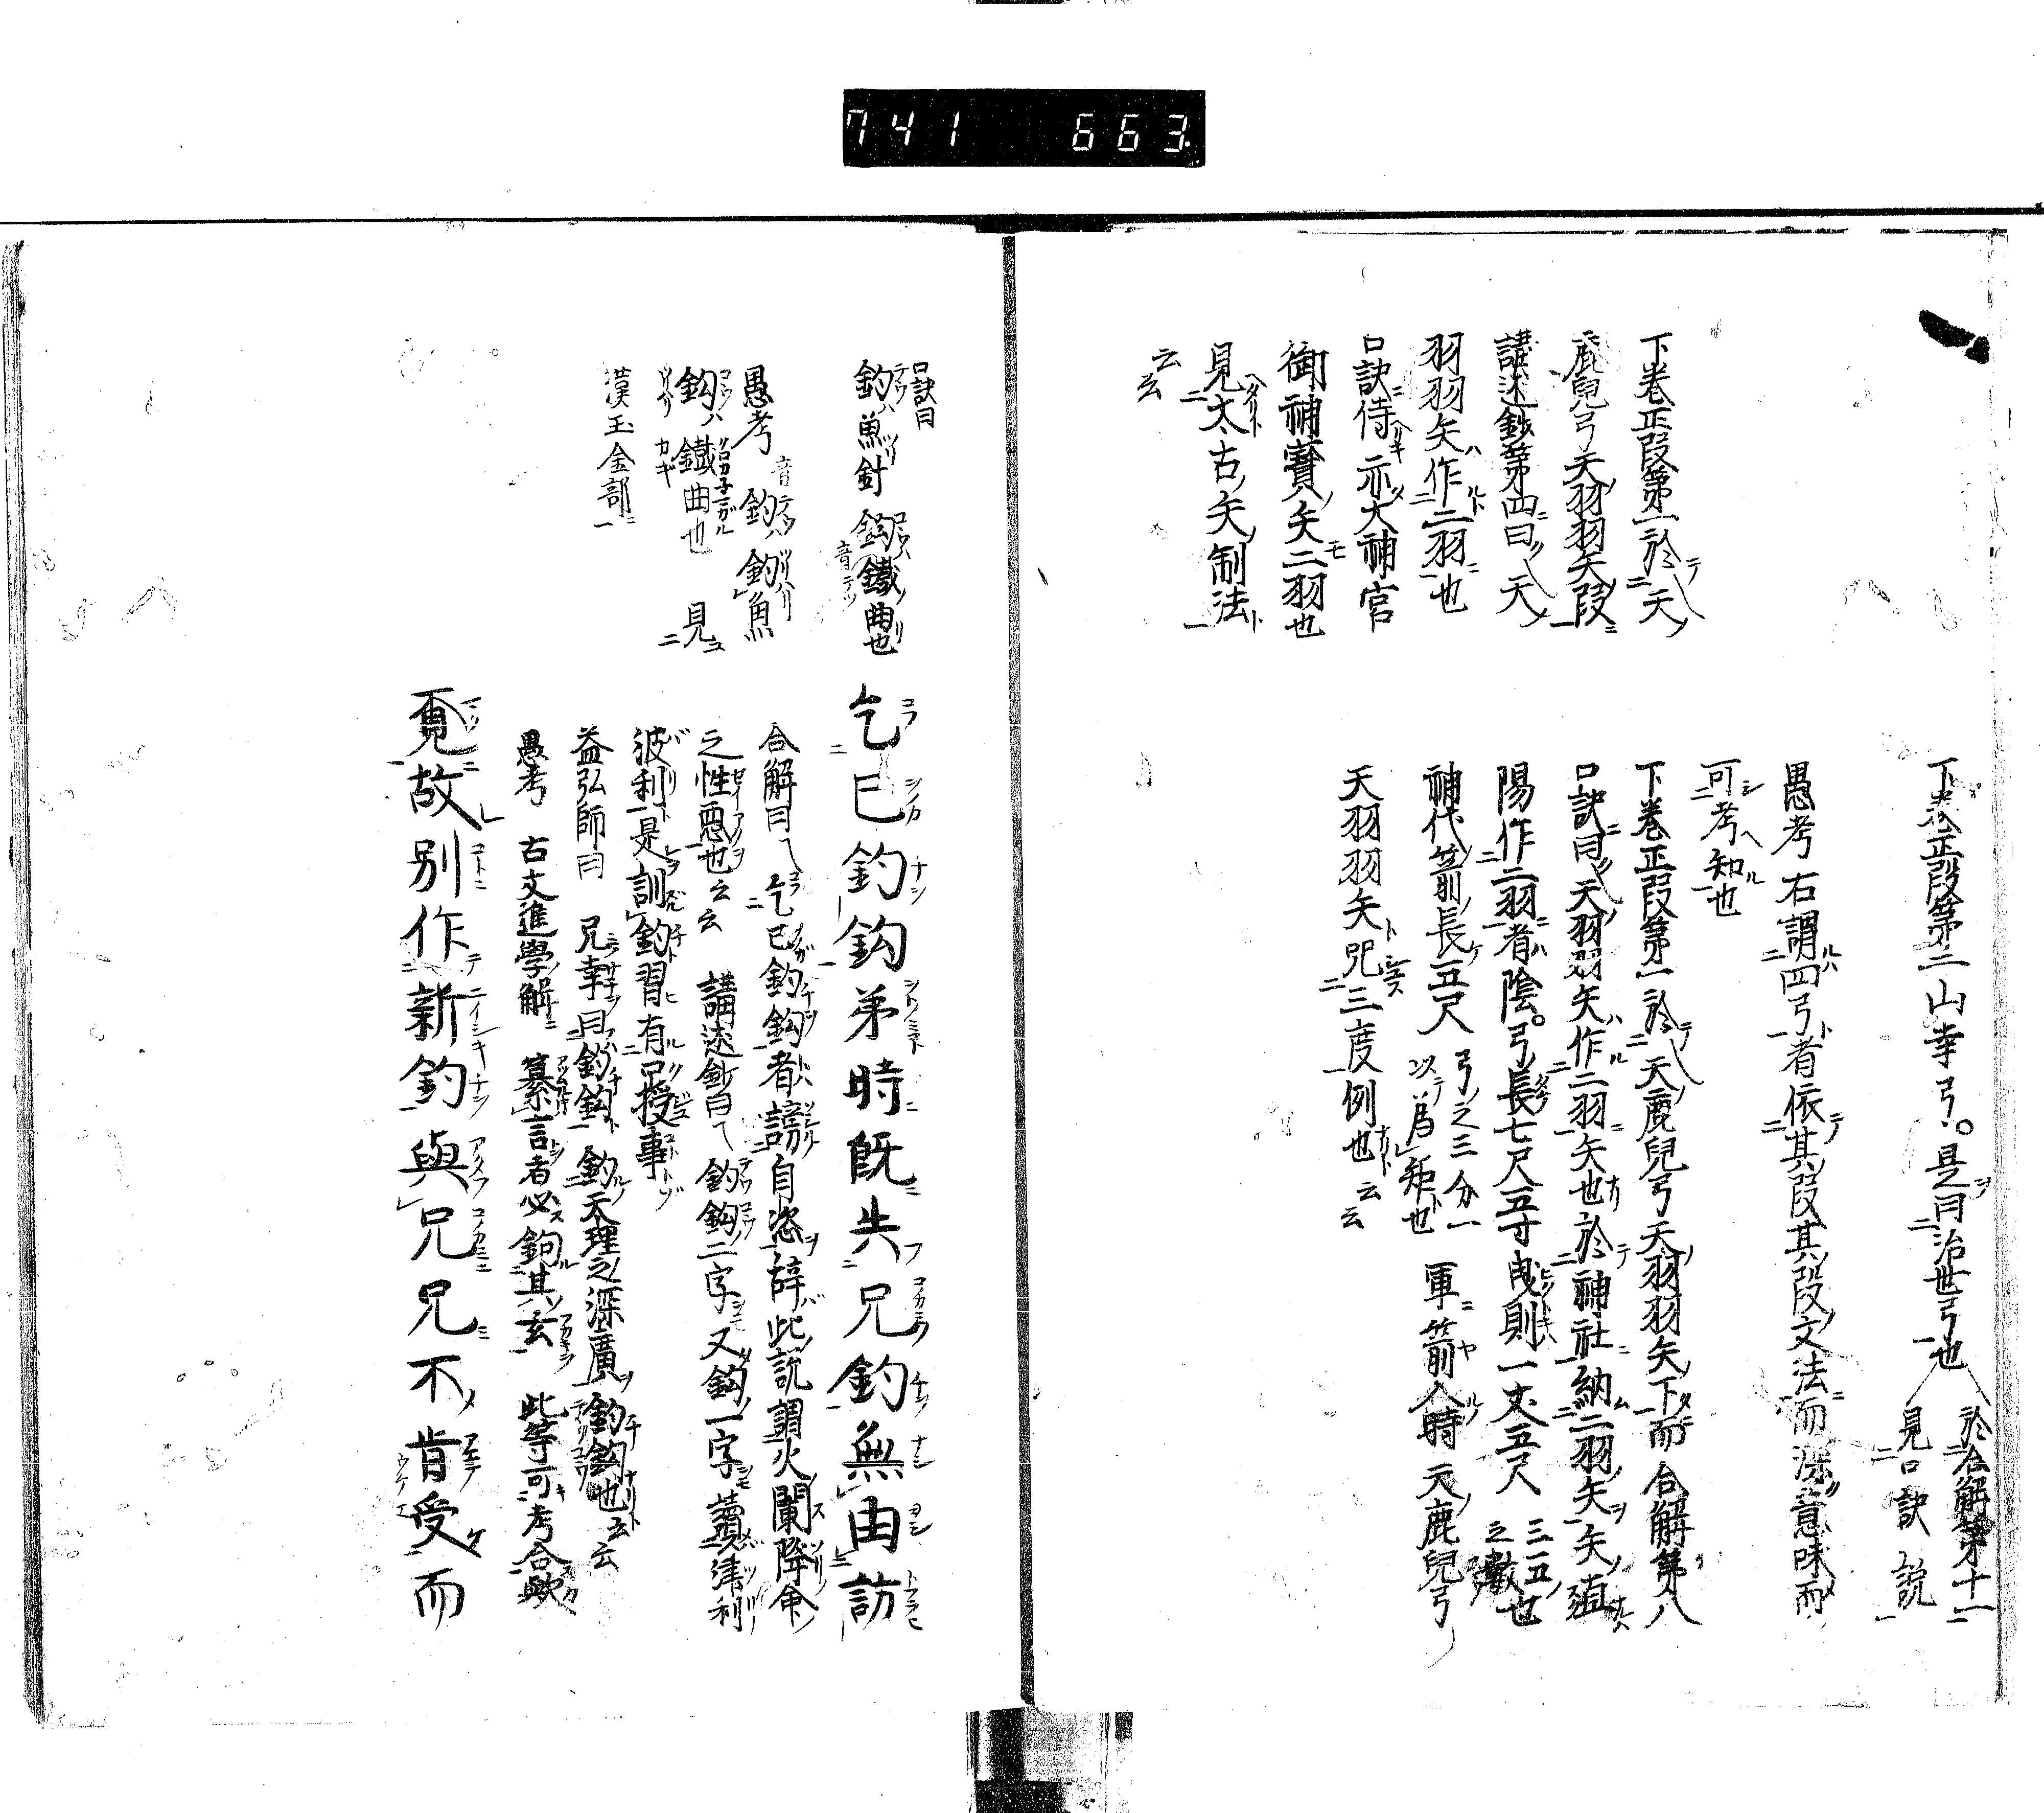 741 663
下巻正段第二山幸弓。是曰治世弓也
於合解第十一
見口訣説
愚考右謂四弓者依其段其段文法而深意味而
可考知也
下巻正段第一於天鹿兒弓天羽羽矢下而合解第八
口訣曰天羽羽矢作二羽矢也於神社納二羽矢矢殖
陽作二羽者陰。弓長七尺五寸曳則一丈五尺
三五也
之數
神代箭長五尺
弓之三分一
以爲矩也
軍箭入時天鹿兒弓
天羽羽矢咒三度例也云云
下巻正段第一於天
鹿兒弓天羽羽矢段
講述鈔第四曰天
羽羽矢作二羽也
口訣侍亦大神宮
御神寳矢二羽也
見太古矢制法
云云
口訣曰
釣魚針 鈎鐵曲也
音テツ
愚考 釣釣魚
鈎鐵曲也 見
漢玉金部
乞己釣鈎弟時既失兄釣無由訪
合解曰乞己釣鈎者謗自恣辞此説謂火闌降命
之性惡也云云 講述鈔曰釣鈎二字又鈎一字讀津利
波利是訓釣習有口授事
益弘師曰 兄幸曰釣鈎 釣天理之深廣釣鈎也云云
愚考 古文進學解 纂言者必鉤其玄 此等可考合歟
覓故別作新釣與兄兄不肯受而